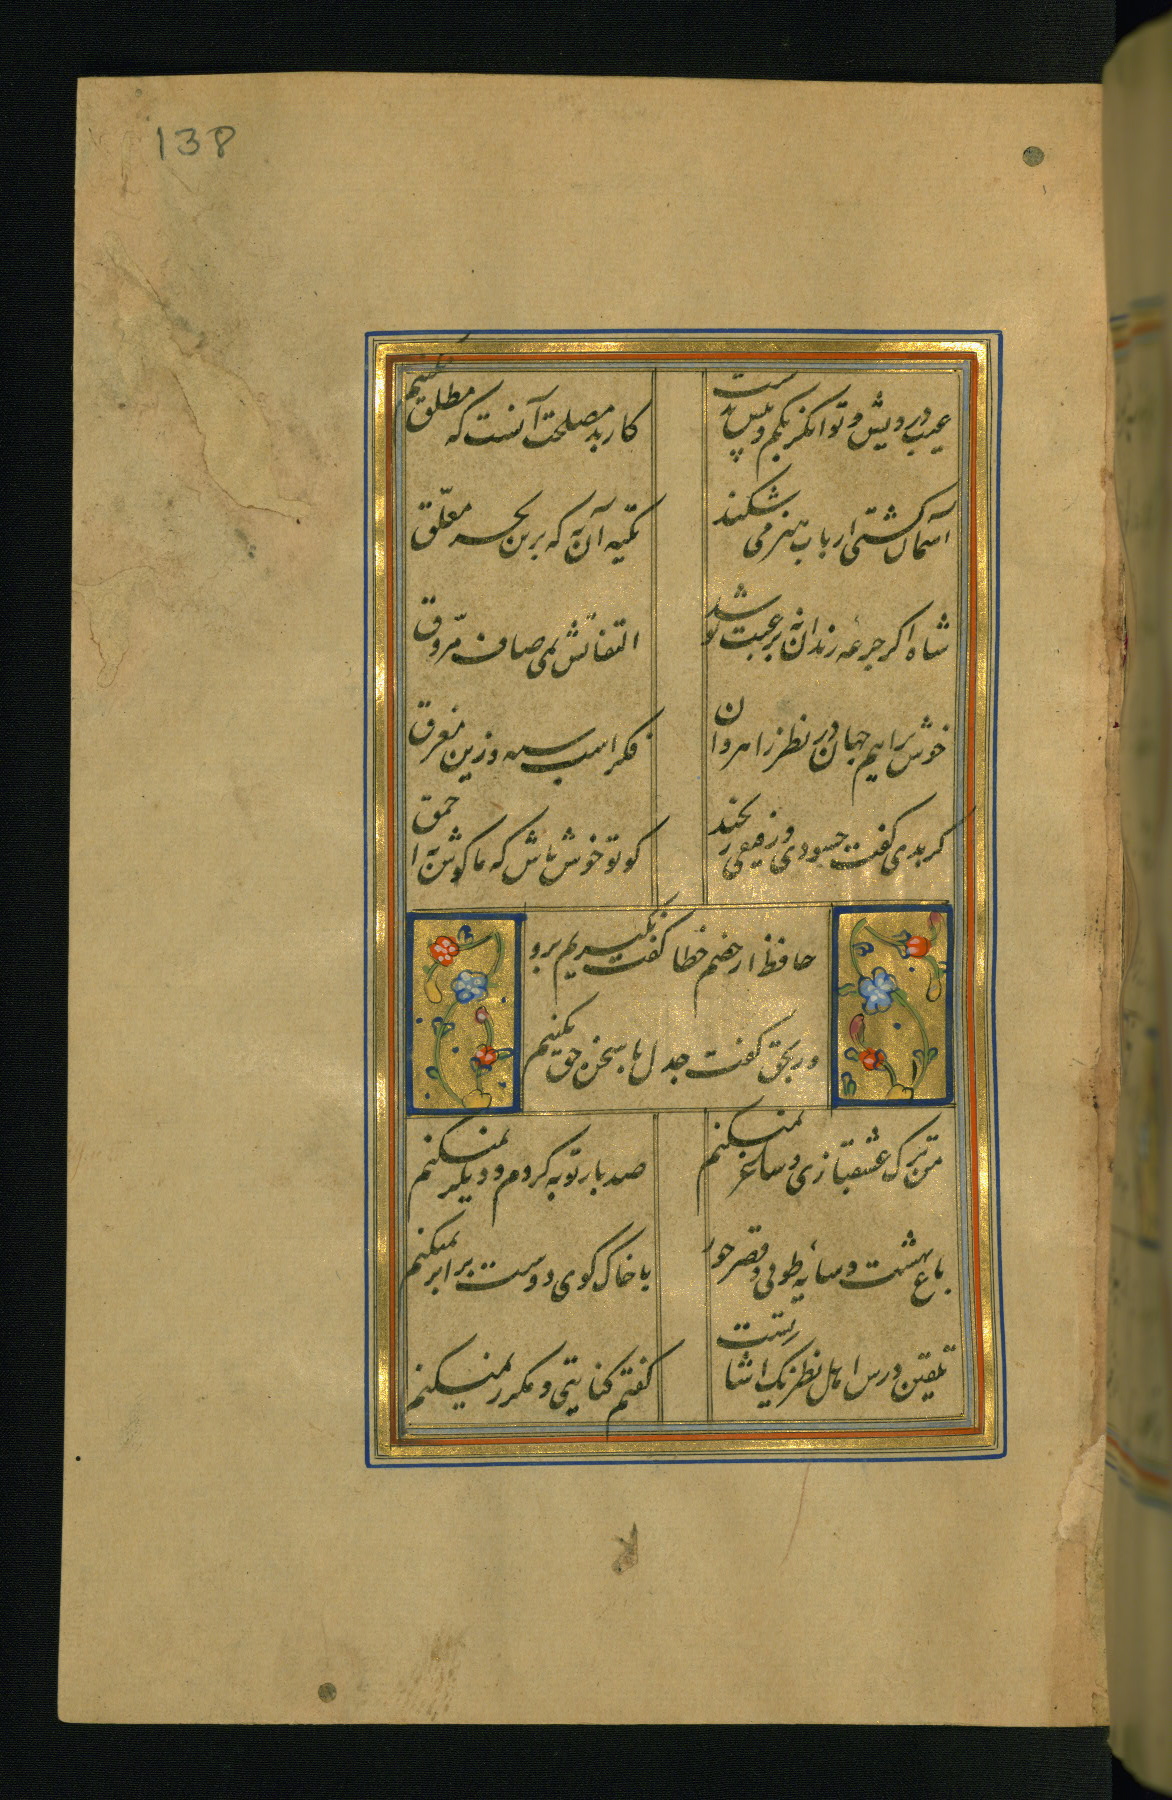 138
عیب درویش و توانکر بکم و بیش بدست
کار بد مصلحت آنست که مطلق نکنیم
آسمان کشتی ارباب هنر می شکند
تکیه آن به که برین بحر معلّق
شاه اکر جرعه رندان نه بر غبت نوشد
التفاتش بمی صاف مرّوق
خوش برانیم جهان در نظر راهروان
فکر اسب سیه و زین مغرق
کر بدی کفت حسودی و رفیقی رنجید
کو تو خوش باش که ما کوش به احمق
حافظ ار خصم خطا کفت نکیریم برو
ور بحق کفت جدل با سخن حق نکنیم
من ترک عشقبازی و ساغر نمیکنم
صد بار توبه کردم و دیکر نمیکنم
باغ بهشت و سایه طوبی و قصر حور
با خاک کوی دوست برابر نمیکنم
تلقین درس اهل نظر یک اشارتست
کفتم کنایتی و مکرر نمیکنم